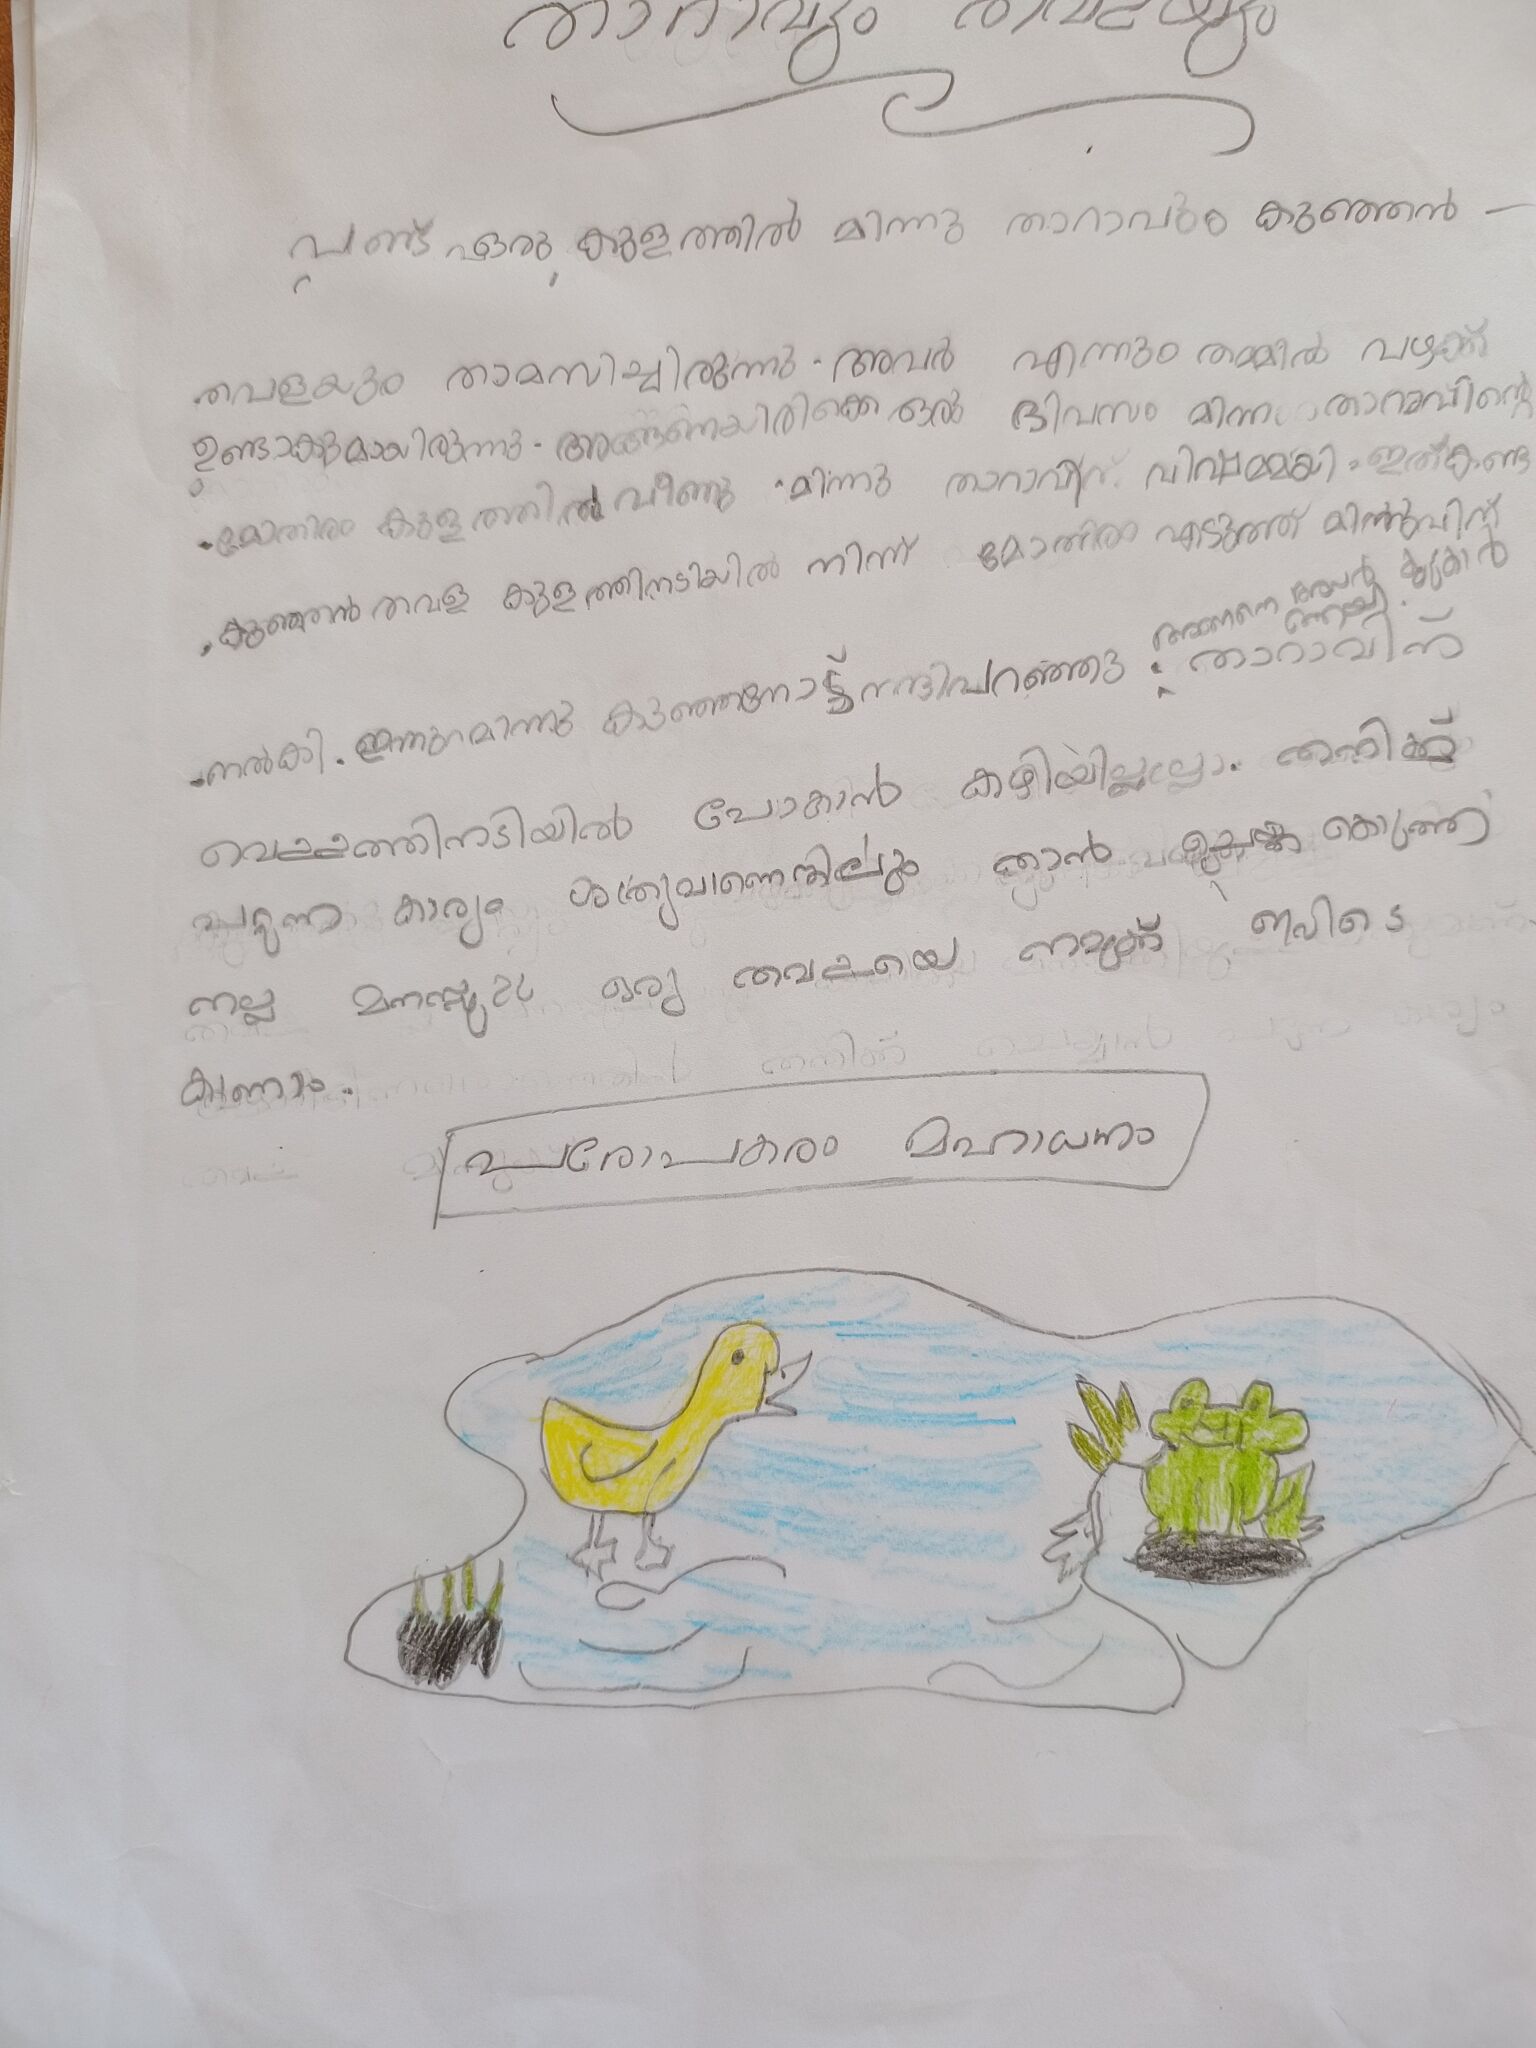 താറാവും തവളയും
പണ്ട് ഒരു കുളത്തിൽ മിന്നു താറാവും കുഞ്ഞൻ -
തവളയും താമസിച്ചിരുന്നു. അവർ എന്നും തമ്മിൽ വഴക്ക്
ഉണ്ടാക്കുമായിരുന്നു. അങ്ങനെയിരിക്കെ ഒരു ദിവസം മിന്നു താറാവിന്റെ
മോതിരം കുളത്തിൽ വീണു. മിന്നു താറാവിന് വിഷമമായി. ഇത്കണ്ട
കുഞ്ഞൻ തവള കുളത്തിനടിയിൽ നിന്ന് മോതിരം എടുത്ത് മിന്നുവിന്
നൽകി. മിന്നു കുഞ്ഞനോട് നന്ദിപറഞ്ഞു. അങ്ങനെ അവർ കൂട്ടുകാർ
താറാവിന്
വെള്ളത്തിനടിയിൽ പോകാൻ കഴിയില്ലല്ലോ. തനിക്ക്
പറ്റുന്ന കാര്യം ശത്രുവാണെങ്കിലും ഞാൻ കൊടുത്തു
നല്ല മനസ്സുള്ള ഒരു തവളയെ നമുക്ക് ഇവിടെ
കാണാം.
പരോപകരം മഹാധനം